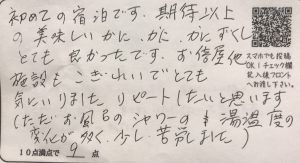 初めての宿泊です。期待以上
の美味しいかに、かに、かにずくし
とても良かったです。お部屋他
施設もこぎれいでとても
気にいりました リピートしたいと思います
(ただお風呂のシャワーの水湯温度の
変化が多く、少し苦労しました)
スマホでも投稿
OK!チェック欄
記入後フロント
へお渡し下さい。
10点満点で 9 点